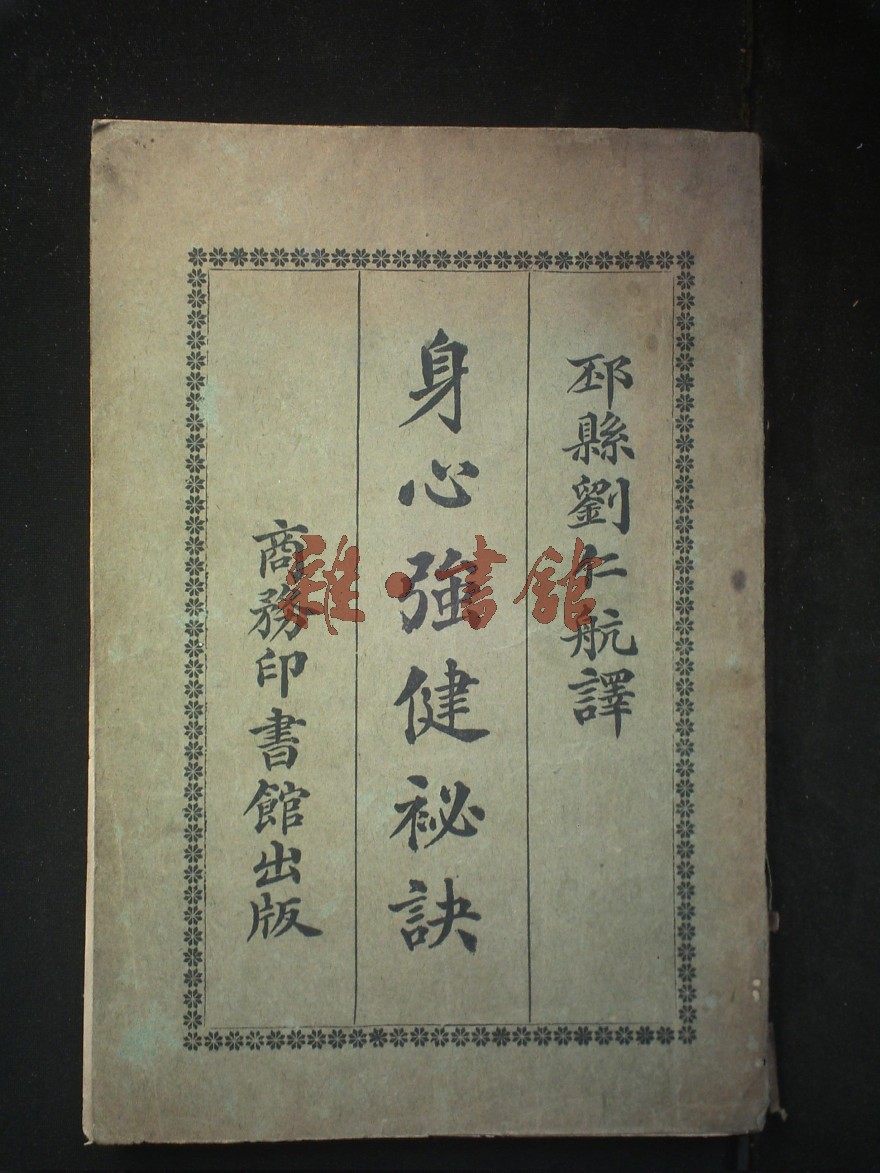 邳縣劉仁航譯
身心強健祕訣
商務印書館出版
雜·書館